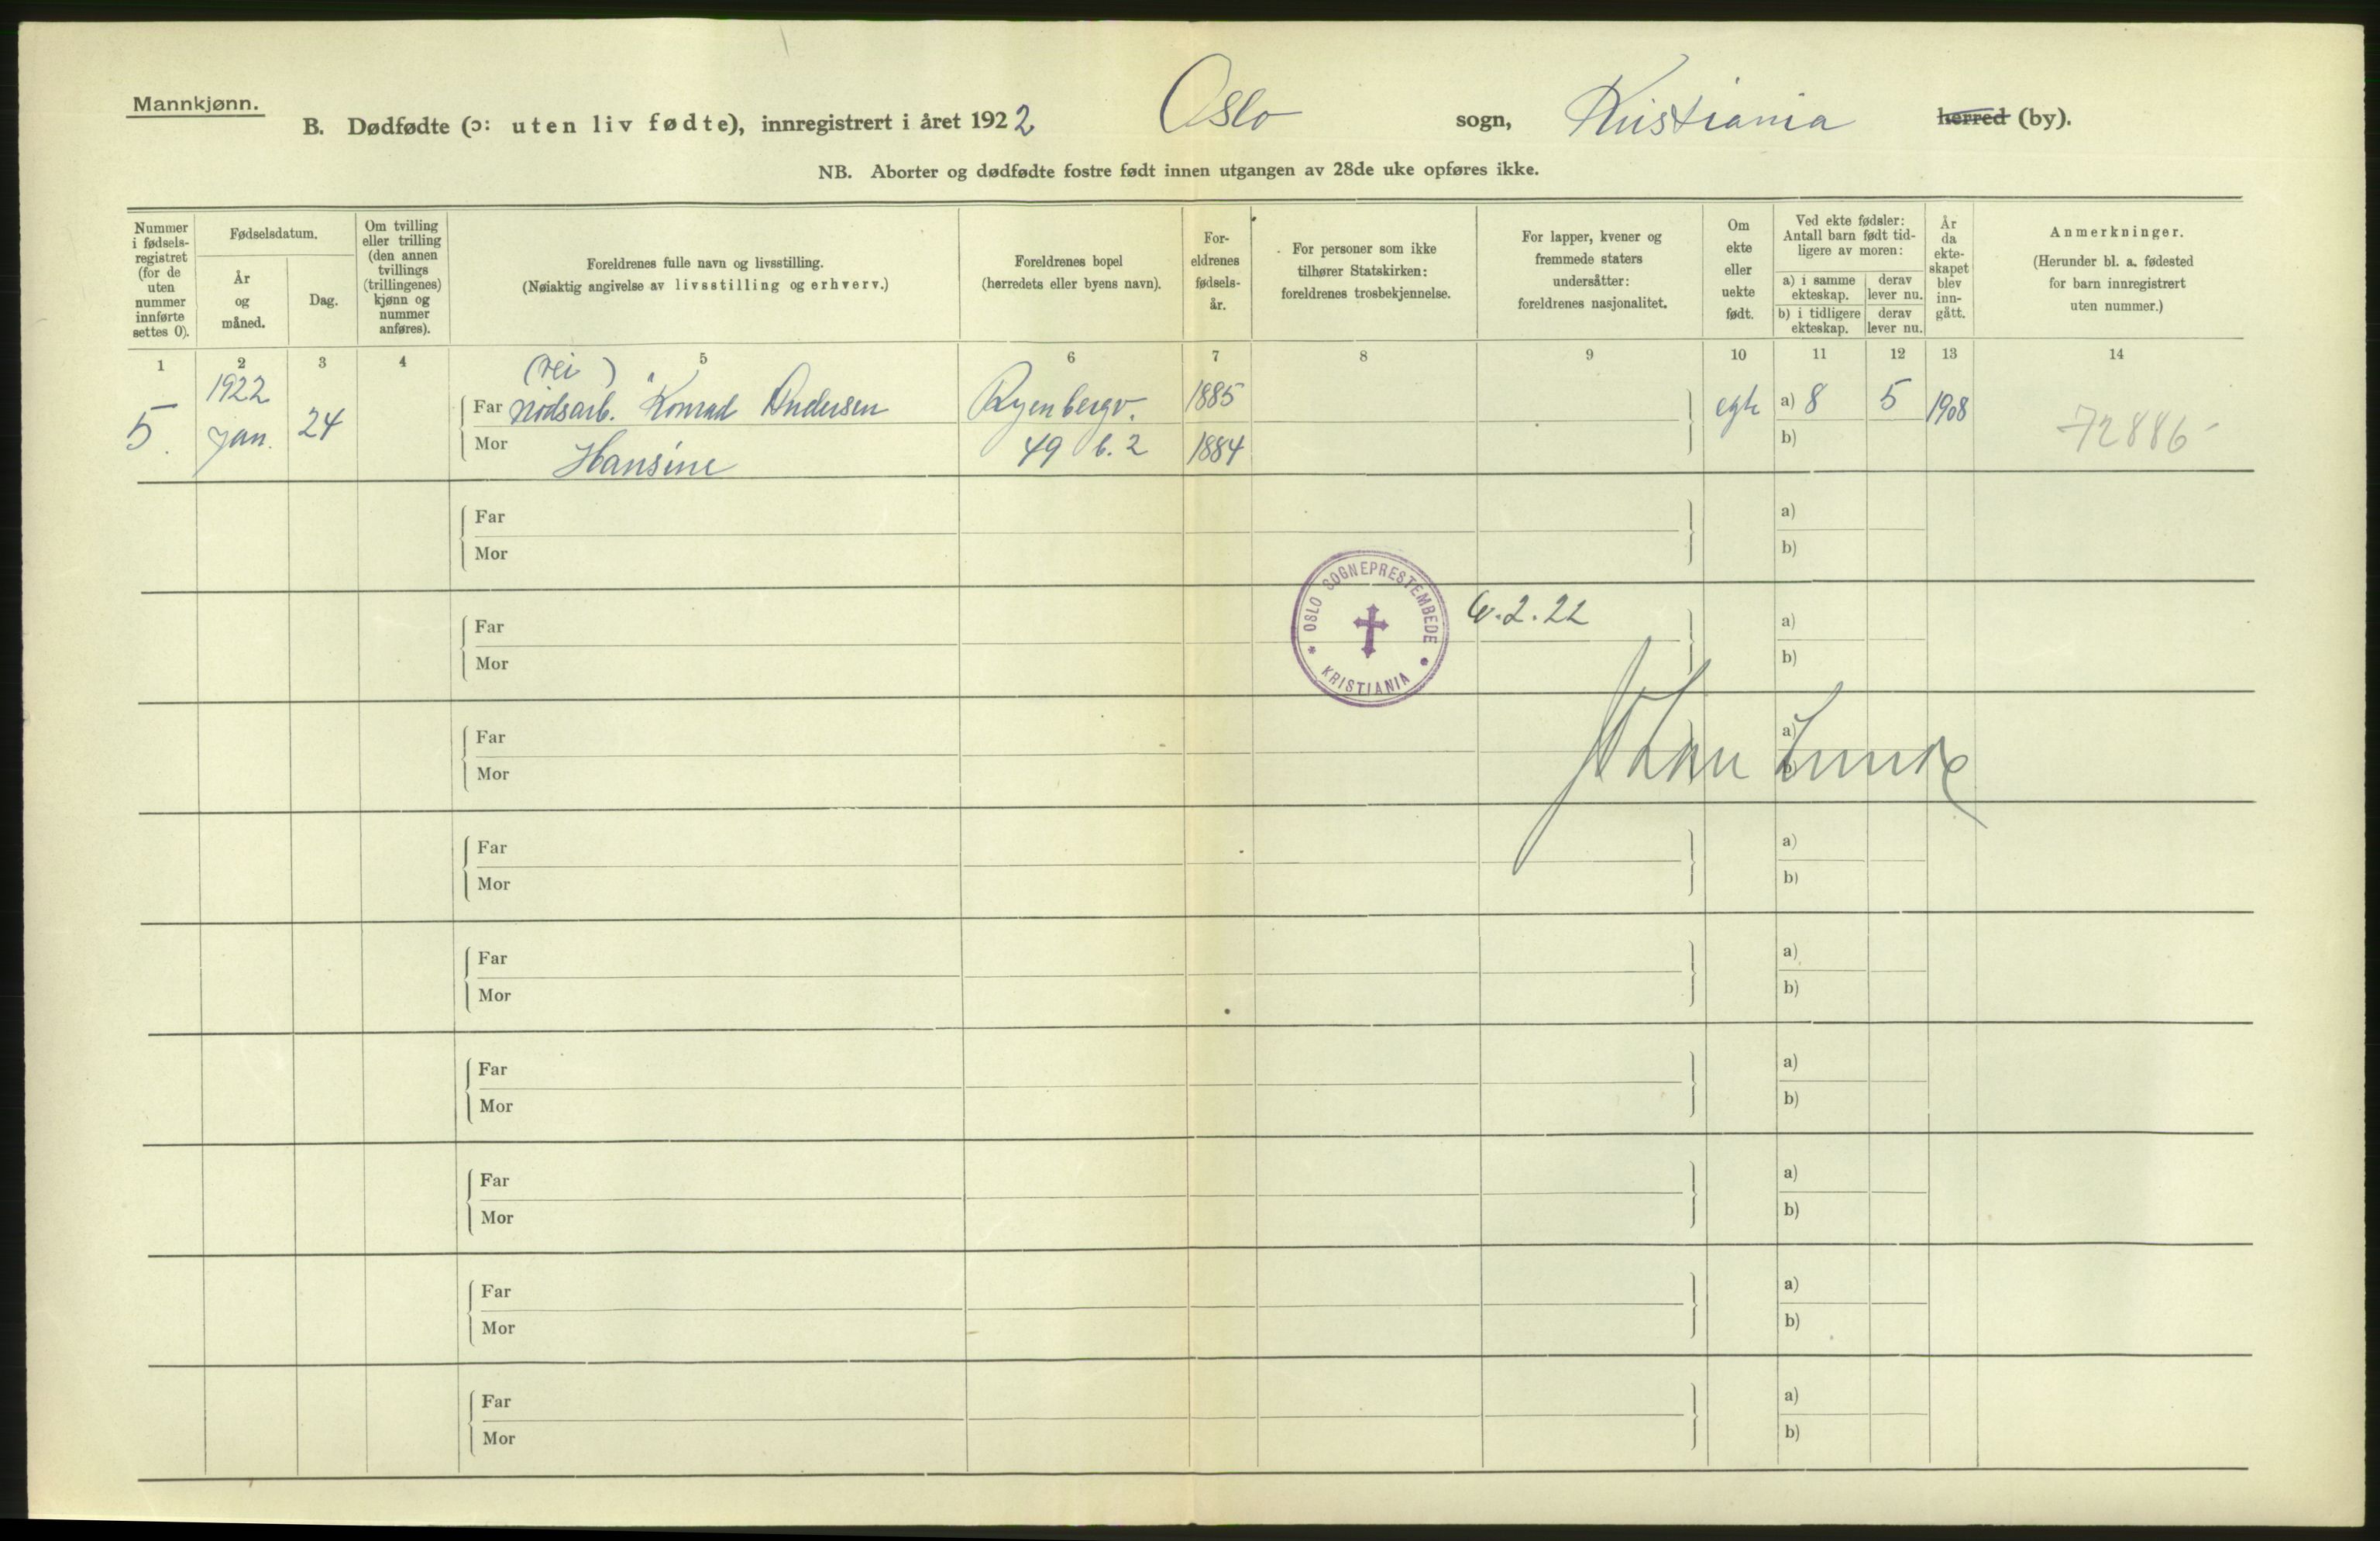 Mannkjønn.
B. Dødfødte (ɔ: uten liv fødte), innregistrert i året 1922 Oslo sogn, Kristiania herred (by).
NB. Aborter og dødfødte fostre født innen utgangen av 28de uke opføres ikke.
Nummer
i fødsels-
registret
(for de
uten
nummer
innførte
settes 0).
Fødselsdatum.
År
og
måned.
Dag.
Om tvilling
eller trilling
(den annen
tvillings
(trillingenes)
kjønn og
nummer
anføres).
Foreldrenes fulle navn og livsstilling.
(Nøiaktig angivelse av livsstilling og erhverv.)
Foreldrenes bopel
(herredets eller byens navn).
For-
eldrenes
fødsels-
år.
For personer som ikke
tilhører Statskirken:
foreldrenes trosbekjennelse.
For lapper, kvener og
fremmede staters
undersåtter:
foreldrenes nasjonalitet.
Om
ekte
eller
uekte
født.
Ved ekte fødsler:
Antall barn født tid-
ligere av moren:
a) i samme
ekteskap.
derav
lever nu.
b) i tidligere
ekteskap.
derav
lever nu.
År
da
ekte-
skapet
blev
inn-
gått.
Anmerkninger.
(Herunder bl. a. fødested
for barn innregistrert
uten nummer.)
1 2 3 4 5 6 7 8 9 10 11 12 13 14
(vei)
5. 1922 Jan. 24
Far nødsarb. Konrad Andersen Ryenbergv. 1885 egte a) 8 5 1908
Mor Hansine 49 b. 2 1884 b) 72886
Far a)
Mor b)
OSLO SOGNEPRESTEMBEDE
KRISTIANIA
6.2.22
Far a)
Mor b)
Far a)
Mor b)
Far a)
Mor b)
Far a)
Mor b)
Far a)
Mor b)
Far a)
Mor b)
Far a)
Mor b)
Far a)
Mor b)